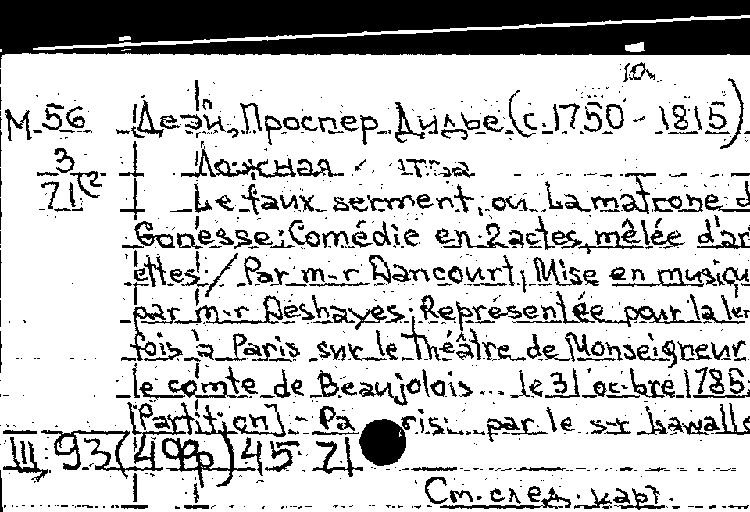 М 56 Деэй, Проспер Дидье (с. 1750 - 1815)
3 Ложная
71
Le faux serment, ou La matrone d
Gonesse; Comédie en 2 actes, mêlée d'ar
ettes / Par m-r Dancourt; Mise en musiqu
par m-r Deshayes; Représentée pour la 1er
fois à Paris sur le Théâtre de Monseigneur
le comte de Beaujolois... le 31 octobre 1786
[Partition] - Paris: par le s-r Lawalle
III 93 (4фр) 45 71
См. след. карт.